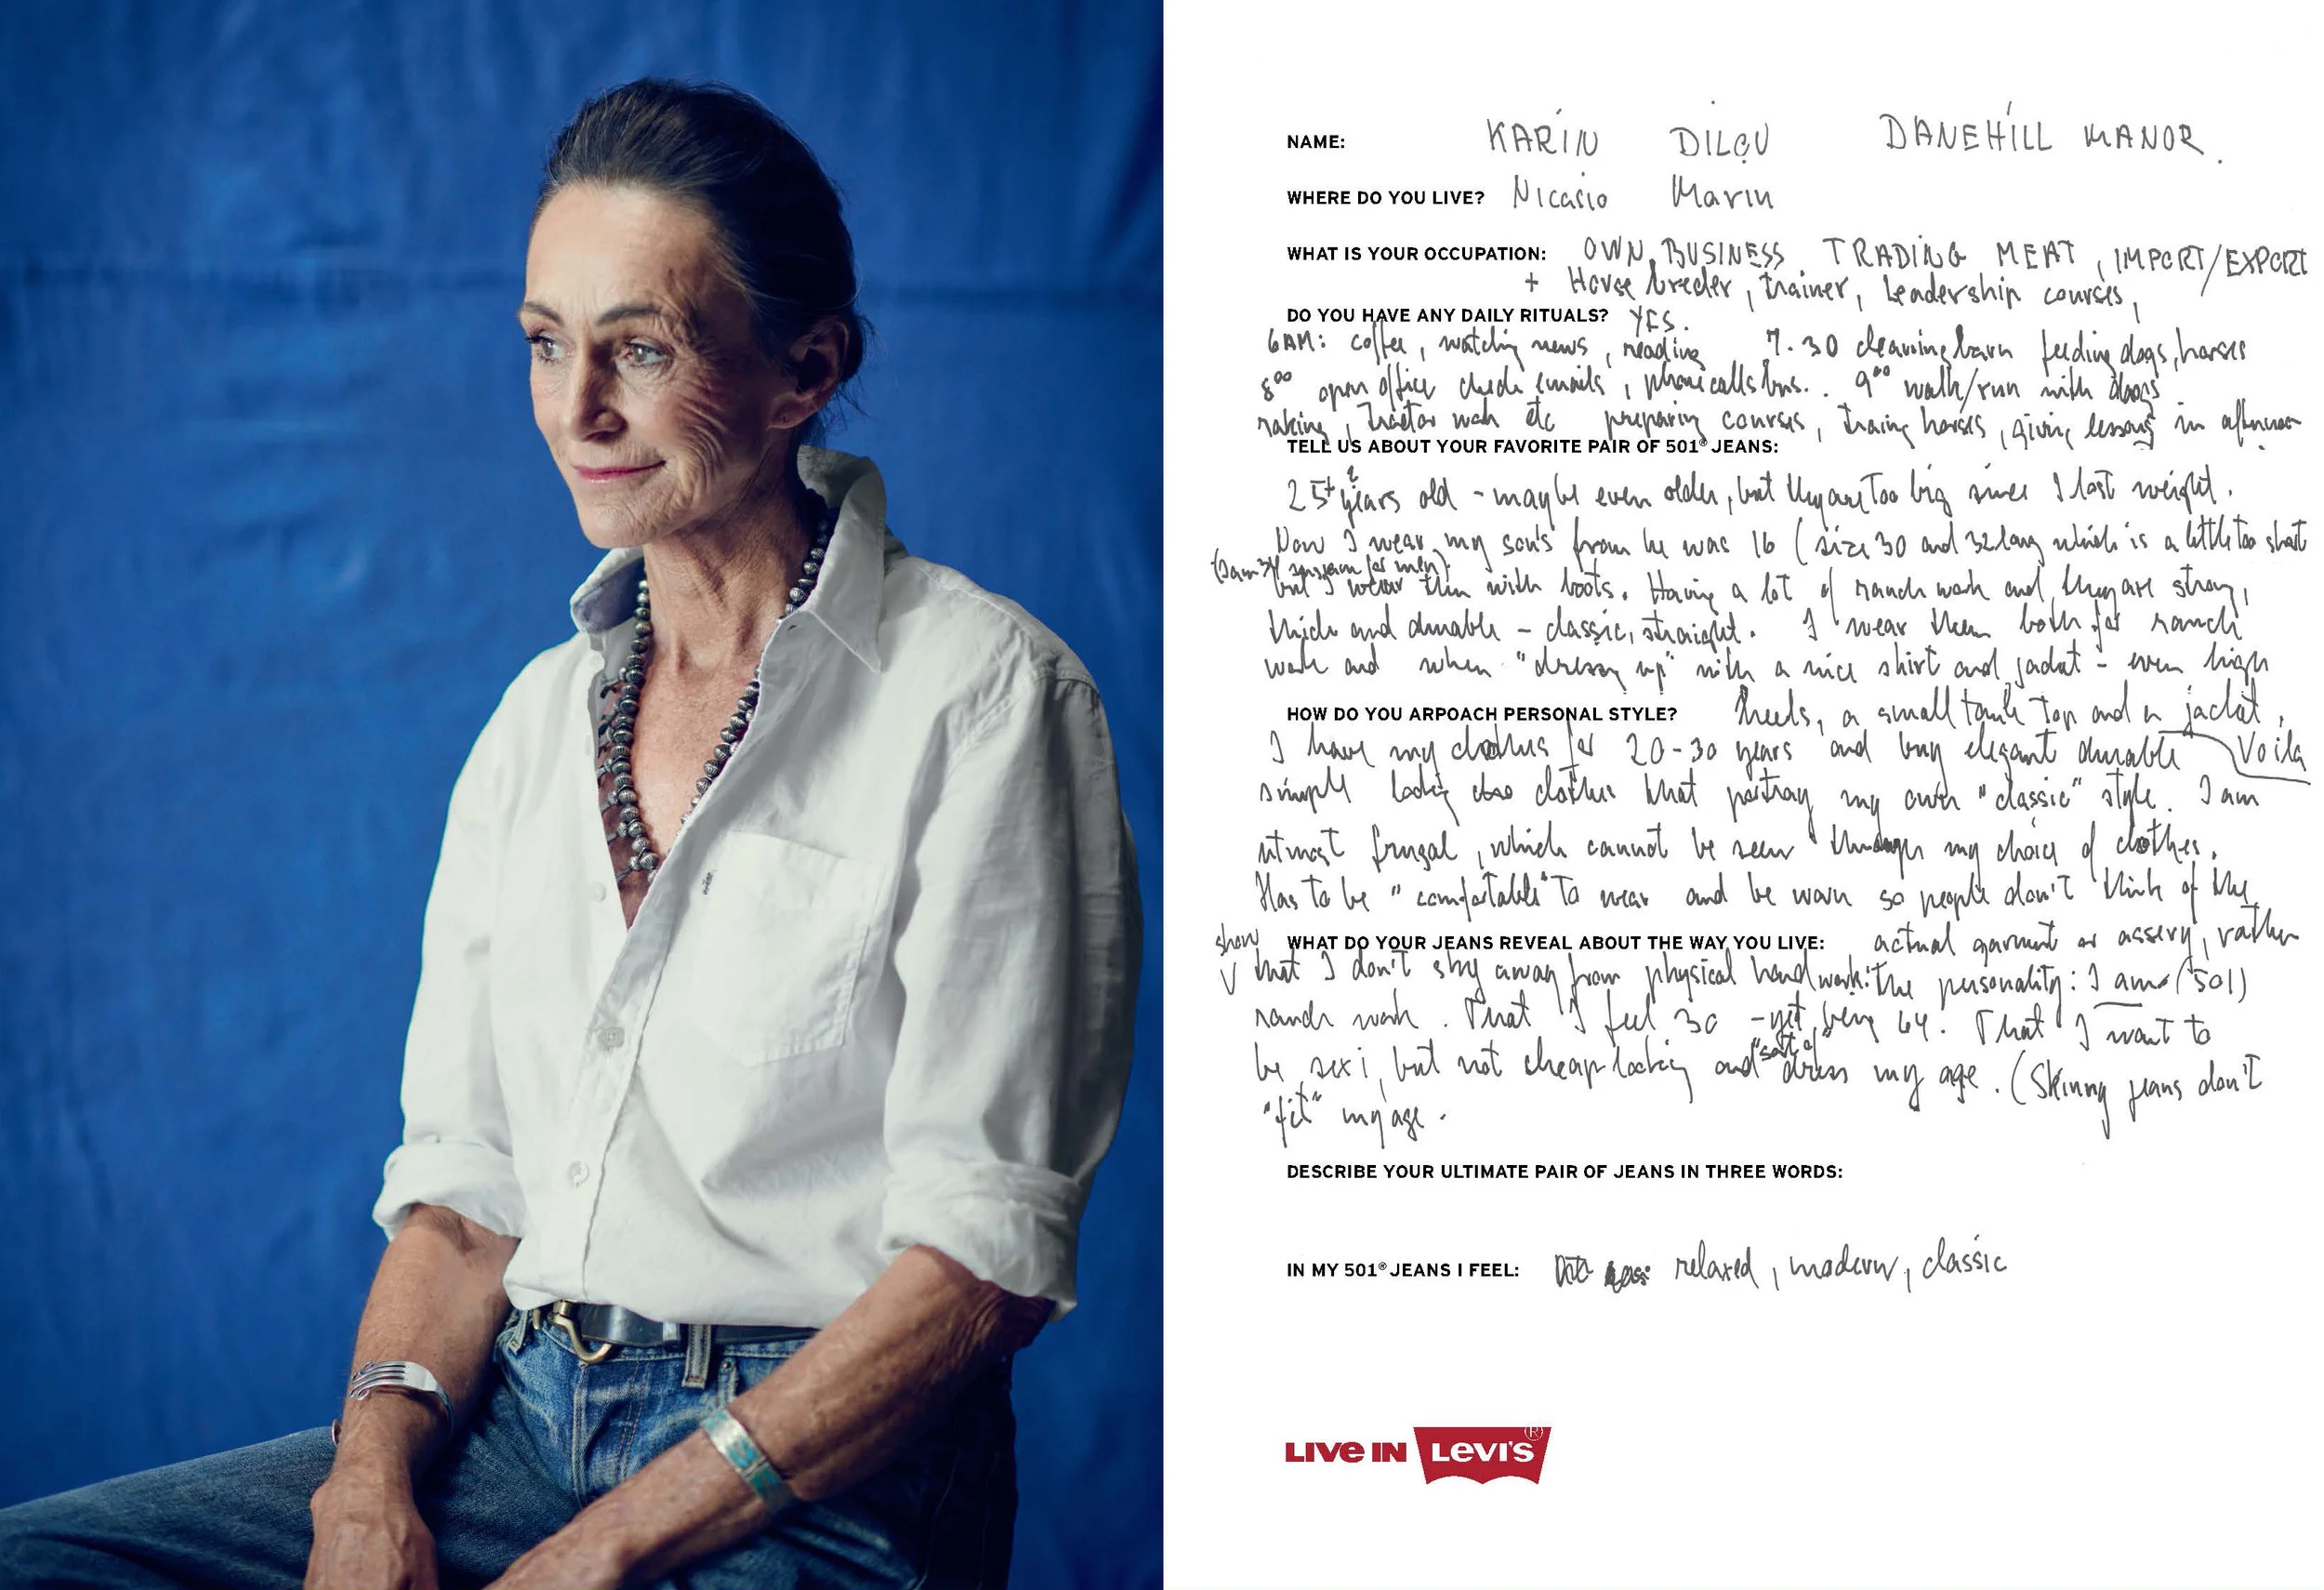 NAME: KARIN DILOU DANEHILL MANOR.
WHERE DO YOU LIVE? Nicasio Marin
WHAT IS YOUR OCCUPATION: OWN BUSINESS TRADING MEAT, IMPORT/EXPORT
+ Horse breeder, trainer, Leadership courses,
DO YOU HAVE ANY DAILY RITUALS? YES.
6AM: coffee, watching news, reading 7.30 cleaning barn feeding dogs, horses
8⁰⁰ open office check emails, phone calls bus.. 9⁰⁰ walk/run with dogs
raking, tractor work etc preparing courses, traing horses, giving lessons in afternoon
TELL US ABOUT YOUR FAVORITE PAIR OF 501® JEANS:
25+ years old - maybe even older, but they are too big since I lost weight.
Now I wear my son's from he was 16 (size 30 and 32 long which is a little too short
but I wear them with boots. Having a lot of ranch work and they are strong,
thick and durable - classic, straight. I wear them both for ranch
work and when "dressy up" with a nice shirt and jacket - even high
HOW DO YOU ARPOACH PERSONAL STYLE? heels, a small tank top and a jacket,
I have my clothes for 20-30 years and buy elegant durable Voila
simple looking clothes that portray my own "classic" style. I am
utmost frugal, which cannot be seen through my choice of clothes.
Has to be "comfortable" to wear and be worn so people don't think of the
show WHAT DO YOUR JEANS REVEAL ABOUT THE WAY YOU LIVE: actual garment or assery, rather
V that I don't shy away from physical hard work. the personality: I am (501)
ranch work. That I feel 30 - yet being 64. That I want to
be sexi, but not cheap looking and "sort of" dress my age. (Skinny jeans don't
"fit" my age.
DESCRIBE YOUR ULTIMATE PAIR OF JEANS IN THREE WORDS:
IN MY 501® JEANS I FEEL: relaxed, modern, classic
LIVE IN LEVI'S®